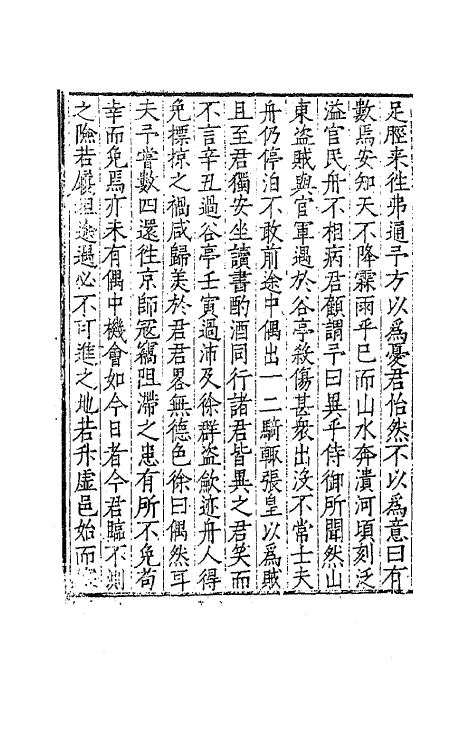 足脛来徃弗通予方以為憂君怡然不以為意曰有
數焉安知天不降霖雨乎已而山水奔潰河頃刻泛
溢官民舟不相病君顧謂予曰異乎侍御所聞然山
東盜賊與官軍遇於谷亭殺傷甚衆出沒不常士夫
舟仍停泊不敢前途中偶出一二騎輒張皇以為賊
且至君獨安坐讀書酌酒同行諸君皆異之君笑而
不言辛丑過谷亭壬寅過沛及徐群盜歛迹舟人得
免摽掠之禍咸歸美於君君畧無德色徐曰偶然耳
夫予嘗數四還徃京師冦竊阻滯之患有所不免苟
幸而免焉亦未有偶中機會如今日者今君臨不測
之險若履坦途遇必不可進之地若升虛邑始而